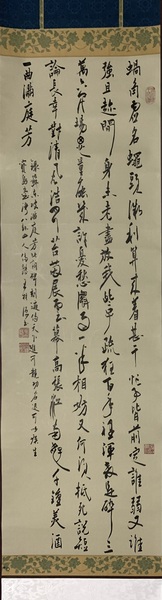 蝸角虛名蠅頭微利算來著甚干忙事皆前定誰弱又誰
強且趁閑身未老盡放我些子疏狂百年裡渾教是醉三
萬六千場思量能幾許憂愁風雨一半相妨又何須抵死說短
論長幸對清風皓月苔茵展雲幕高張江南好千鍾美酒
一曲滿庭芳